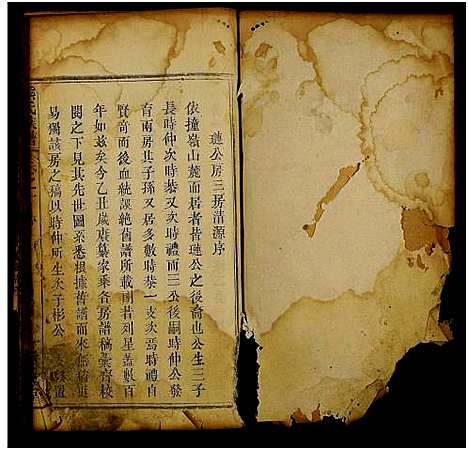 璉公房三房清源序
依撞嶺山麓而居者皆璉公之後裔也公生三子
長時仲次時恭又次時禮而三公後嗣時仲公發
育兩房其子孫又居多數時恭一支次焉時禮自
賢奇而後血統誤絶舊譜所載固昔列星蓋數百
年如兹矣今乙丑歲賡纂家乘各房譜稿彙齊校
閱之下見其先世圖系悉根據舊譜而來
易獨該房之稿以時仲所生次子彬公